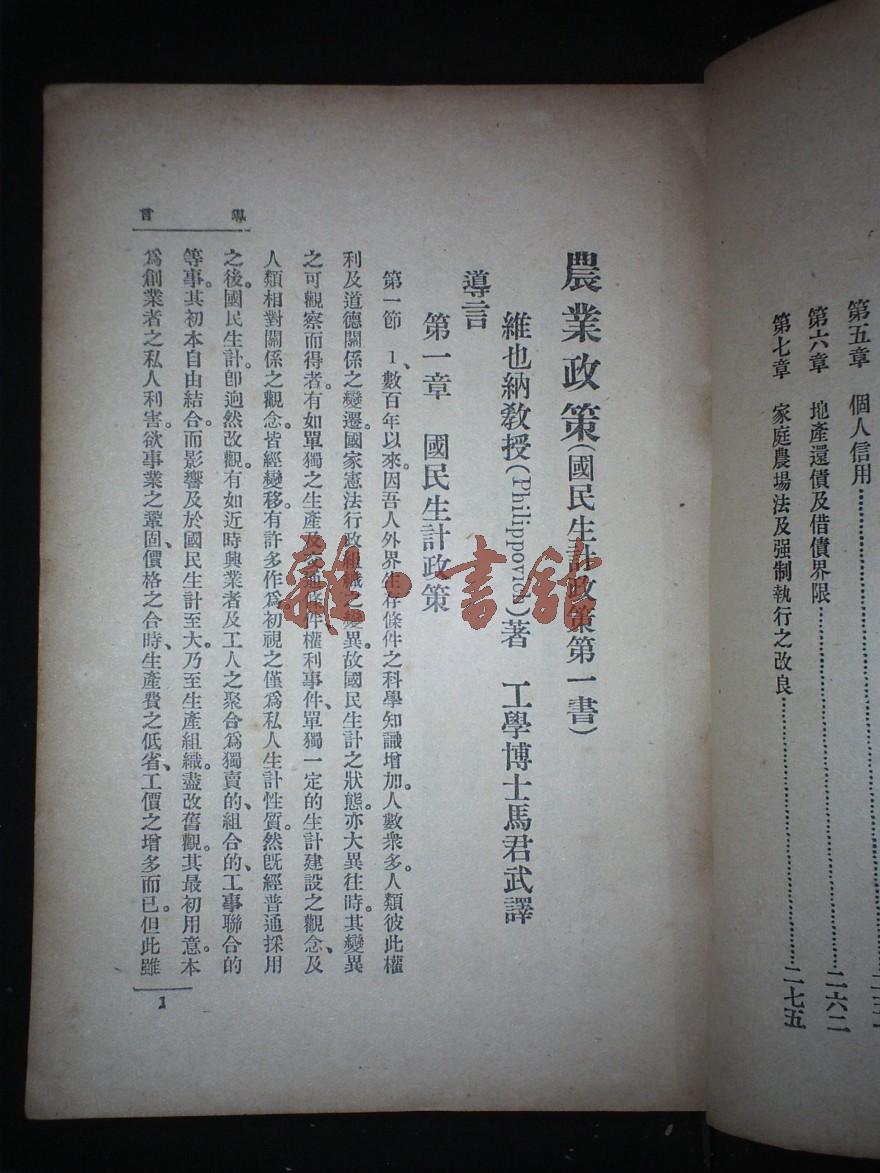 第五章　個人信用……………………
第六章　地產還債及借債界限……………………二六二
第七章　家庭農場法及强制執行之改良……………………二七五
導言
農業政策(國民生計政策第一書)
維也納敎授(Philippovich)著　工學博士馬君武譯
導言
第一章　國民生計政策
第一節　1、數百年以來。因吾人外界生存條件之科學知識增加。人數衆多。人類彼此權
利及道德關係之變遷。國家憲法行政組織之變異。故國民生計之狀態。亦大異往時。其變異
之可觀察而得者。有如單獨之生產及交通條件、權利事件、單獨一定的生計建設之觀念、及
人類相對關係之觀念。皆經變移。有許多作爲。初視之僅爲私人生計性質。然旣經普通採用
之後。國民生計。卽迥然改觀。有如近時興業者及工人之聚合爲獨賣的、組合的、工事聯合的
等事。其初本自由結合。而影響及於國民生計至大。乃至生產組織。盡改舊觀。其最初用意。本
爲創業者之私人利害。欲事業之鞏固、價格之合時、生產費之低省、工價之增多而已。但此雖
1
雜·書館